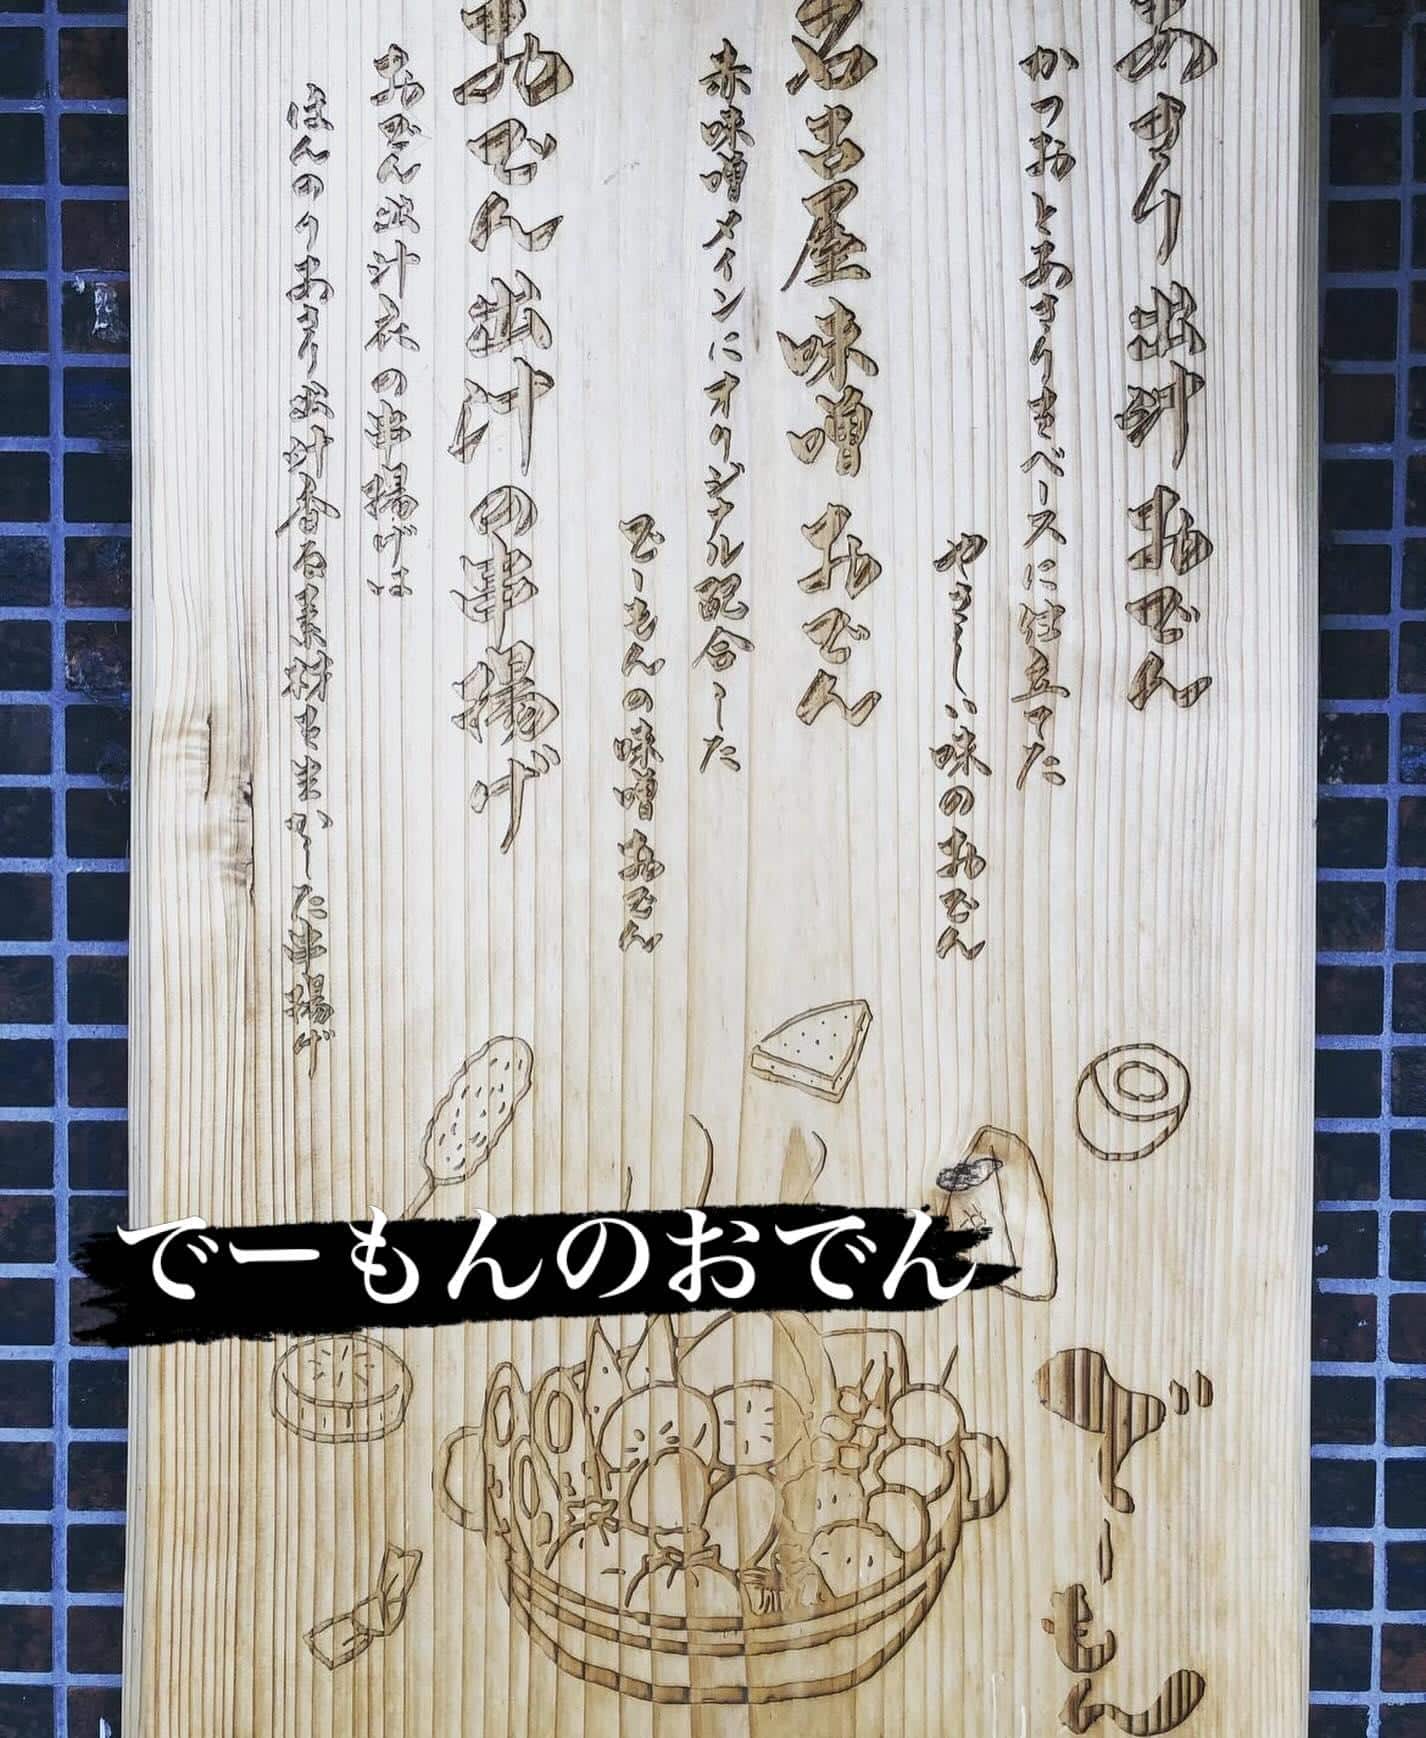 あさり出汁おでん
かつおとあさりをベースに仕立てた
やさしい味のおでん
名古屋味噌おでん
赤味噌メインにオリジナル配合した
でーもんの味噌おでん
おでん出汁の串揚げ
おでん出汁衣の串揚げは
ほんのりあさり出汁香る素材を生かした串揚げ
でーもんのおでん
でーもん